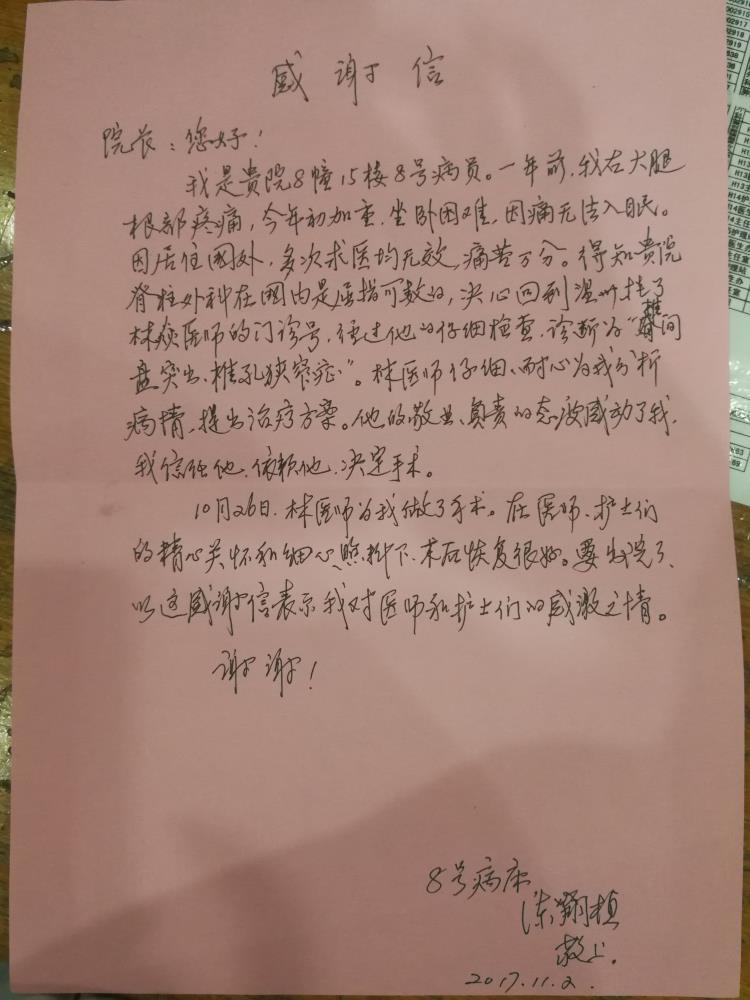 感谢信
院长：您好！
我是贵院8幢15楼8号病员。一年前，我右大腿
根部疼痛，今年初加重，坐卧困难，因痛无法入眠。
因居住国外，多次求医均无效，痛苦万分。得知贵院
脊柱外科在国内是屈指可数的，决心回到温州挂了
林焱医师的门诊号，经过他的仔细检查，诊断为“椎间
盘突出、椎孔狭窄症”。林医师仔细、耐心为我分析
病情，提出治疗方案。他的敬业、负责的态度感动了我，
我信任他，依赖他，决定手术。
10月26日，林医师为我做了手术。在医师、护士们
的精心关怀和细心照料下，术后恢复很好。要出院了，
以这感谢信表示我对医师和护士们的感激之情。
谢谢！
8号病床
陈翔植
敬上.
2017.11.2.
02917
02918
02919